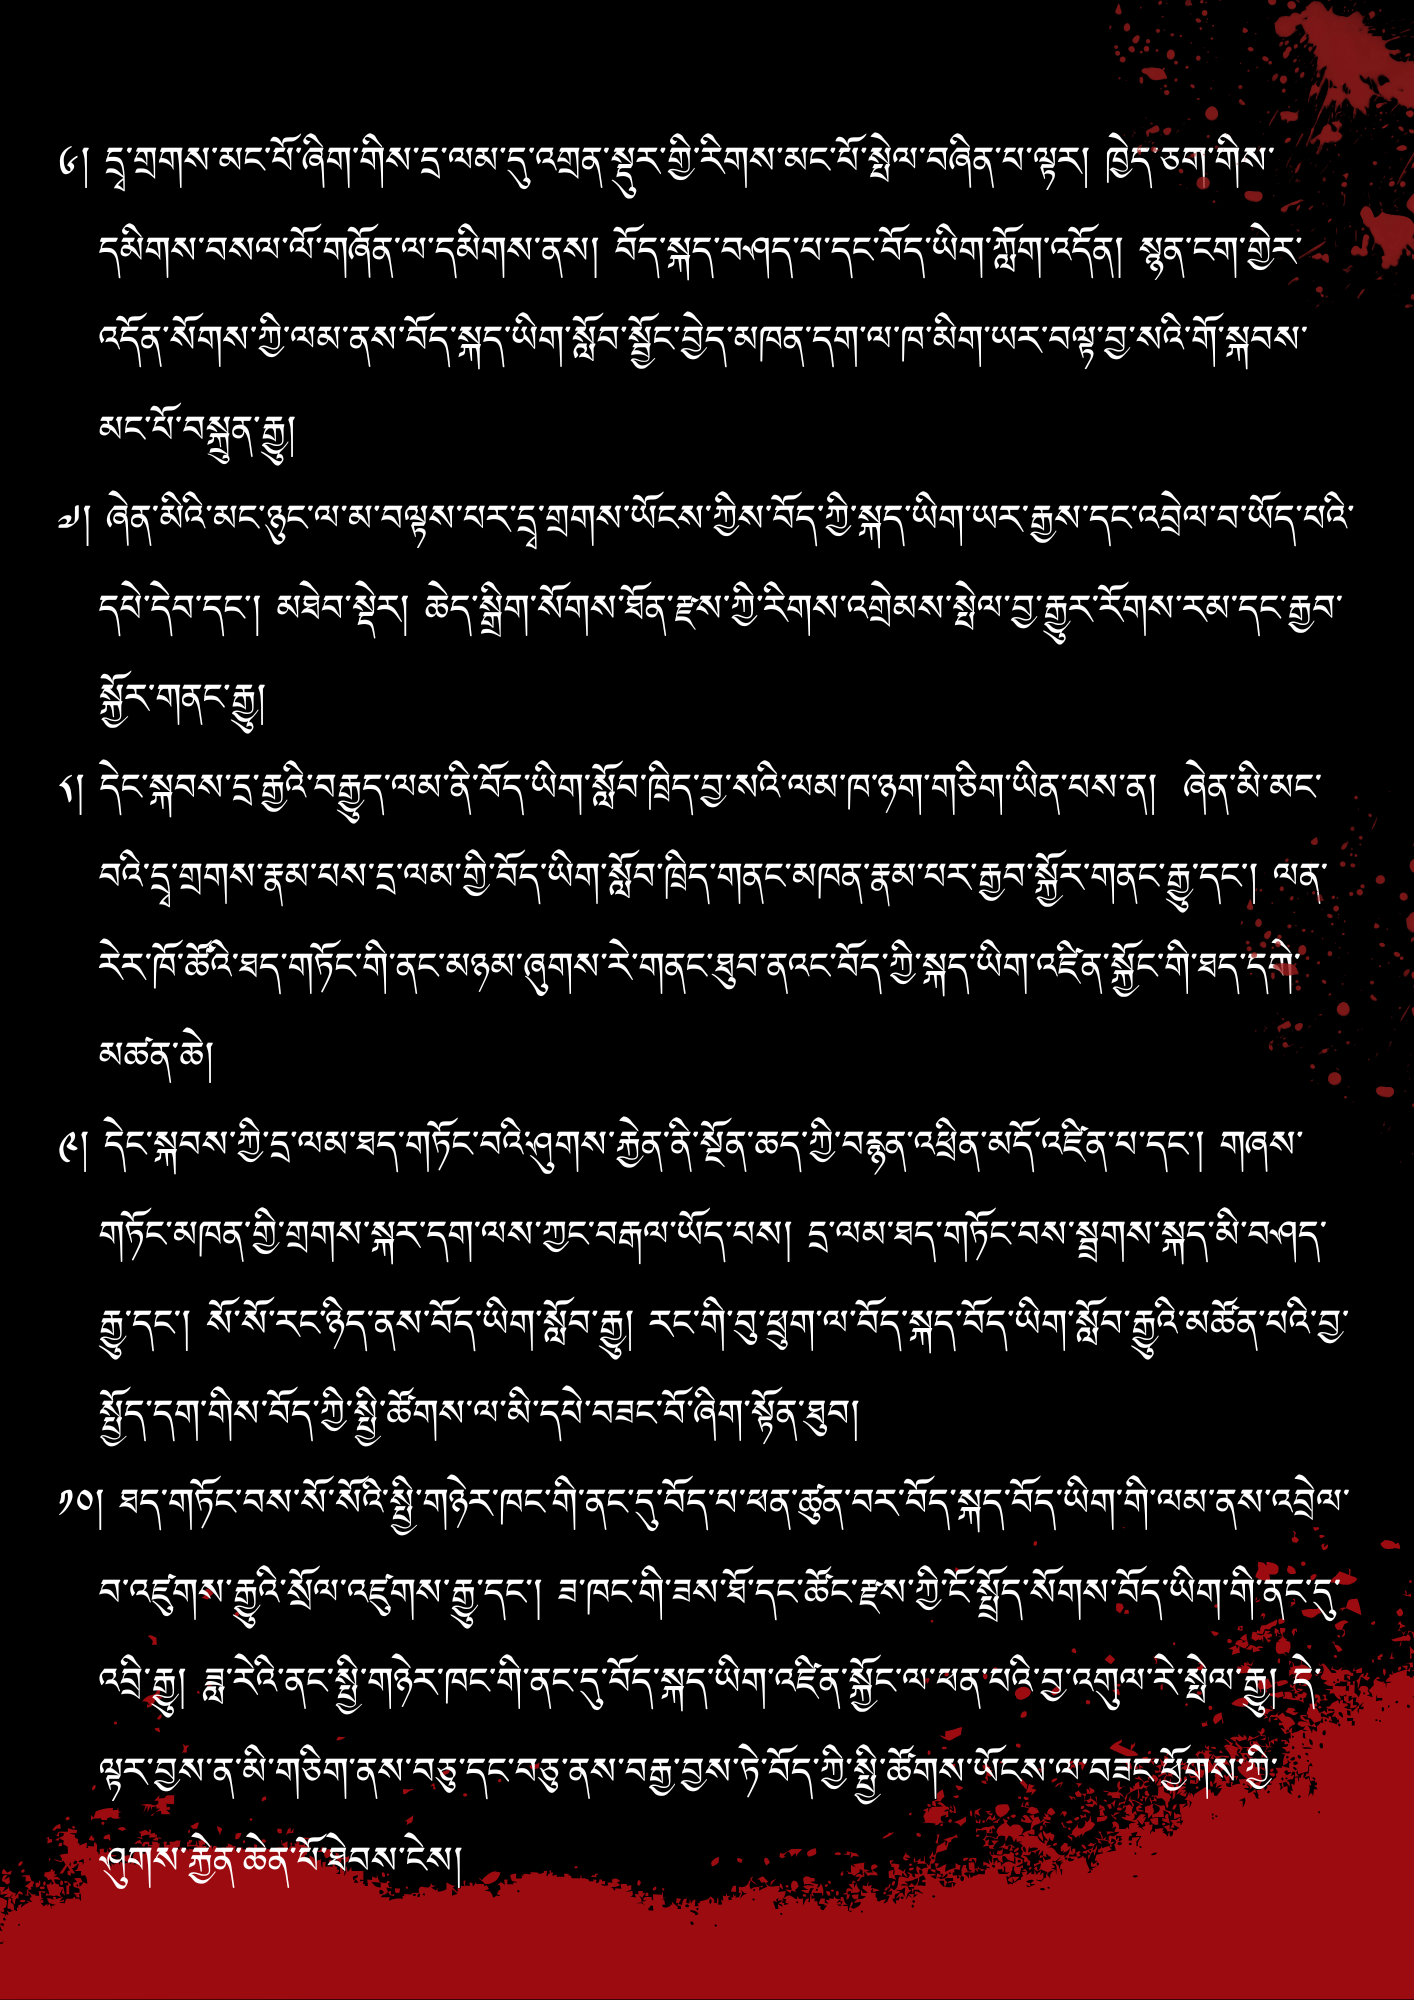 ༦། དྲྭ་གྲགས་མང་པོ་ཞིག་གིས་དྲ་ལམ་དུ་འགྲན་སྡུར་གྱི་རིགས་མང་པོ་སྤེལ་བཞིན་པ་ལྟར། ཁྱེད་ཅག་གིས་
དམིགས་བསལ་ལོ་གཞོན་ལ་དམིགས་ནས། བོད་སྐད་བཤད་པ་དང་བོད་ཡིག་ཀློག་འདོན། སྙན་ངག་གྱེར་
འདོན་སོགས་ཀྱི་ལམ་ནས་བོད་སྐད་ཡིག་སློབ་སྦྱོང་བྱེད་མཁན་དག་ལ་ཁ་མིག་ཡར་བལྟ་བྱ་སའི་གོ་སྐབས་
མང་པོ་བསྐྲུན་རྒྱུ།
༧། ཞེན་མིའི་མང་ཉུང་ལ་མ་བལྟས་པར་དྲྭ་གྲགས་ཡོངས་ཀྱིས་བོད་ཀྱི་སྐད་ཡིག་ཡར་རྒྱས་དང་འབྲེལ་བ་ཡོད་པའི་
དཔེ་དེབ་དང་། མཐེབ་སྡེར། ཆེད་སྒྲིག་སོགས་ཐོན་རྫས་ཀྱི་རིགས་འགྲེམས་སྤེལ་བྱ་རྒྱུར་རོགས་རམ་དང་རྒྱབ་
སྐྱོར་གནང་རྒྱུ།
༨། དེང་སྐབས་དྲ་རྒྱའི་བརྒྱུད་ལམ་ནི་བོད་ཡིག་སློབ་ཁྲིད་བྱ་སའི་ལམ་ཁ་ཉག་གཅིག་ཡིན་པས་ན། ཞེན་མི་མང་
བའི་དྲྭ་གྲགས་རྣམ་པས་དྲ་ལམ་གྱི་བོད་ཡིག་སློབ་ཁྲིད་གནང་མཁན་རྣམ་པར་རྒྱབ་སྐྱོར་གནང་རྒྱུ་དང་། ལན་
རེར་ཁོ་ཚོའི་ཐད་གཏོང་གི་ནང་མཉམ་ཞུགས་རེ་གནང་ཐུབ་ནའང་བོད་ཀྱི་སྐད་ཡིག་འཛིན་སྐྱོང་གི་ཐད་དགེ་
མཚན་ཆེ།
༩། དེང་སྐབས་ཀྱི་དྲ་ལམ་ཐད་གཏོང་བའི་ཤུགས་རྐྱེན་ནི་སྔོན་ཆད་ཀྱི་བརྙན་འཕྲིན་མདོ་འཛིན་པ་དང་། གཞས་
གཏོང་མཁན་གྱི་གྲགས་སྐར་དག་ལས་ཀྱང་བརྒལ་ཡོད་པས། དྲ་ལམ་ཐད་གཏོང་བས་སྦྲགས་སྐད་མི་བཤད་
རྒྱུ་དང་། སོ་སོ་རང་ཉིད་ནས་བོད་ཡིག་སློབ་རྒྱུ། རང་གི་བུ་ཕྲུག་ལ་བོད་སྐད་བོད་ཡིག་སློབ་རྒྱུའི་མཚོན་པའི་བྱ་
སྤྱོད་དག་གིས་བོད་ཀྱི་སྤྱི་ཚོགས་ལ་མི་དཔེ་བཟང་བོ་ཞིག་སྟོན་ཐུབ།
༡༠། ཐད་གཏོང་བས་སོ་སོའི་སྤྱི་གཉེར་ཁང་གི་ནང་དུ་བོད་པ་ཕན་ཚུན་བར་བོད་སྐད་བོད་ཡིག་གི་ལམ་ནས་འབྲེལ་
བ་འཛུགས་རྒྱུའི་སྲོལ་འཛུགས་རྒྱུ་དང་། ཟ་ཁང་གི་ཟས་ཐོ་དང་ཚོང་རྫས་ཀྱི་ངོ་སྤྲོད་སོགས་བོད་ཡིག་གི་ནང་དུ་
འབྲི་རྒྱུ། ཟླ་རེའི་ནང་སྤྱི་གཉེར་ཁང་གི་ནང་དུ་བོད་སྐད་ཡིག་འཛིན་སྐྱོང་ལ་ཕན་པའི་བྱ་འགུལ་རེ་སྤེལ་རྒྱུ། དེ་
ལྟར་བྱས་ན་མི་གཅིག་ནས་བཅུ་དང་བཅུ་ནས་བརྒྱ་བྱས་ཏེ་བོད་ཀྱི་སྤྱི་ཚོགས་ཡོངས་ལ་བཟང་ཕྱོགས་ཀྱི་
ཤུགས་རྐྱེན་ཆེན་པོ་ཐེབས་ངེས།